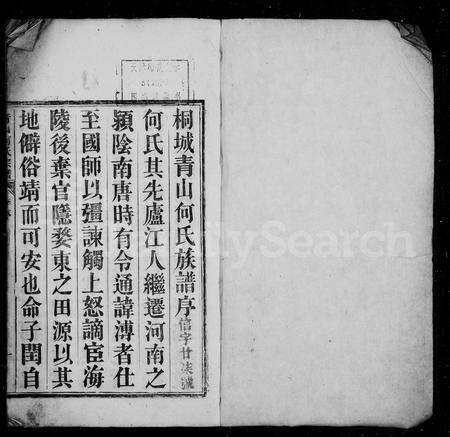 桐城青山何氏族譜序
信字廿柒號
何氏其先廬江人繼遷河南之
潁陰南唐時有令通諱溥者仕
至國師以彊諫觸上怒謫宦海
陵後棄官隱婺東之田源以其
地僻俗靖而可安也命子閏自
FamilySearch